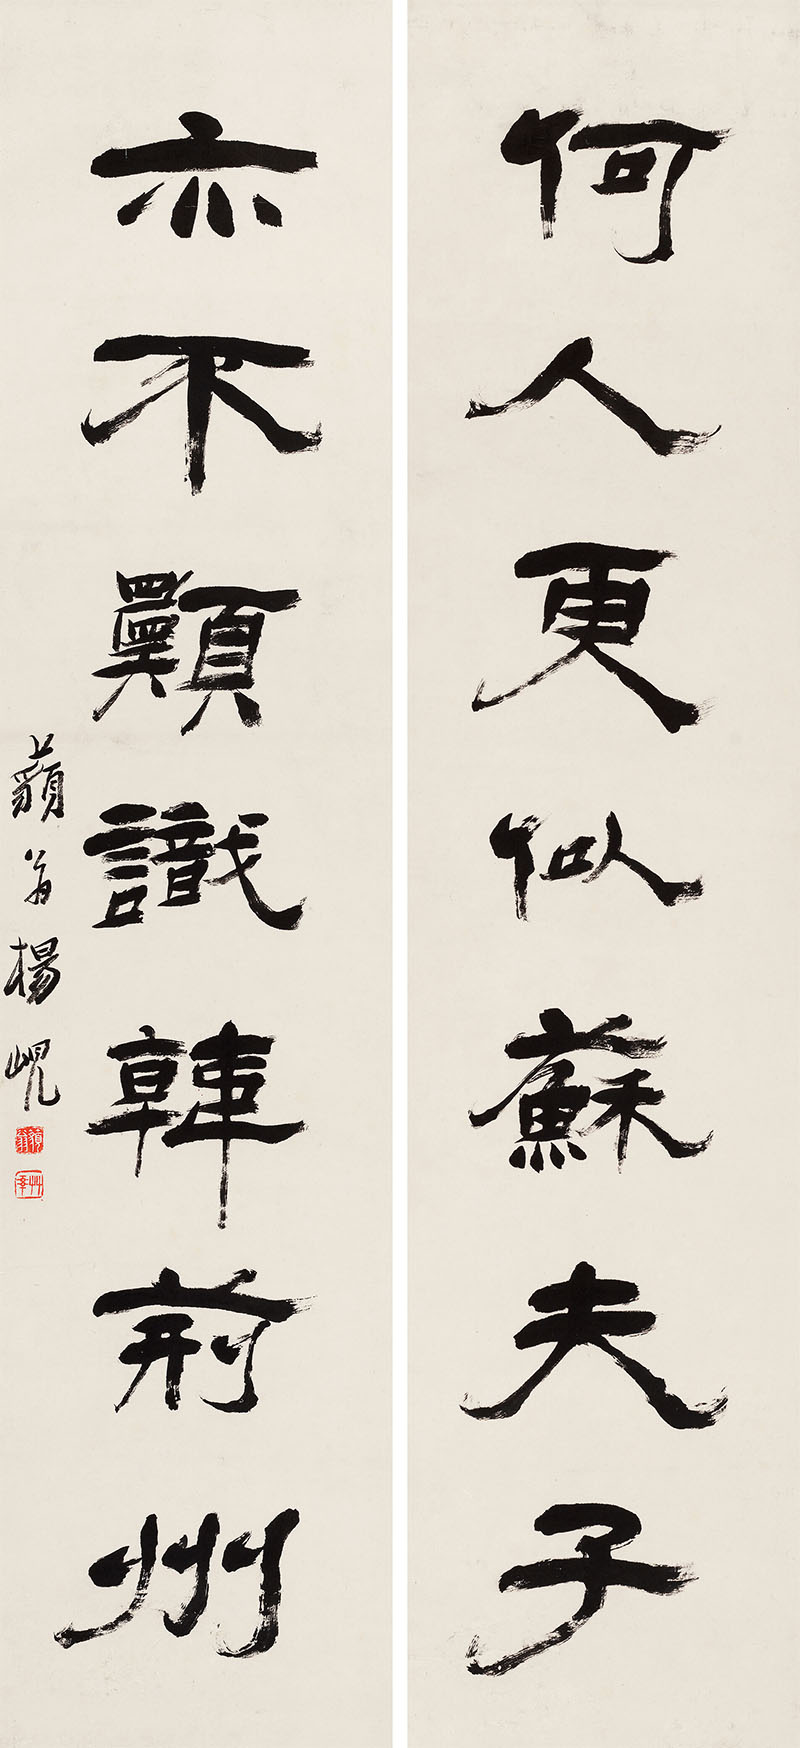 何人更似蘇夫子
亦不顠識韓荊州
藐翁楊峴
藐翁